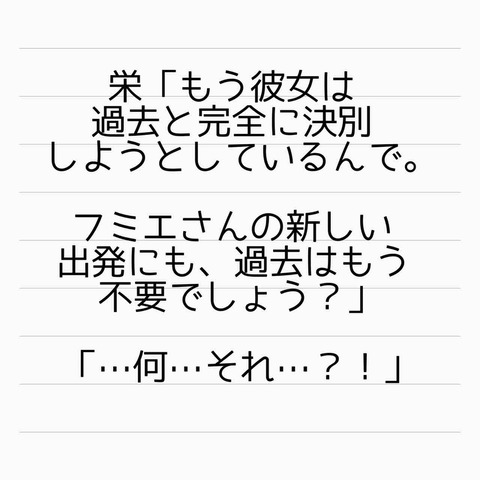 栄「もう彼女は
過去と完全に決別
しようとしているんで。
フミエさんの新しい
出発にも、過去はもう
不要でしょう？」
「…何…それ…？！」